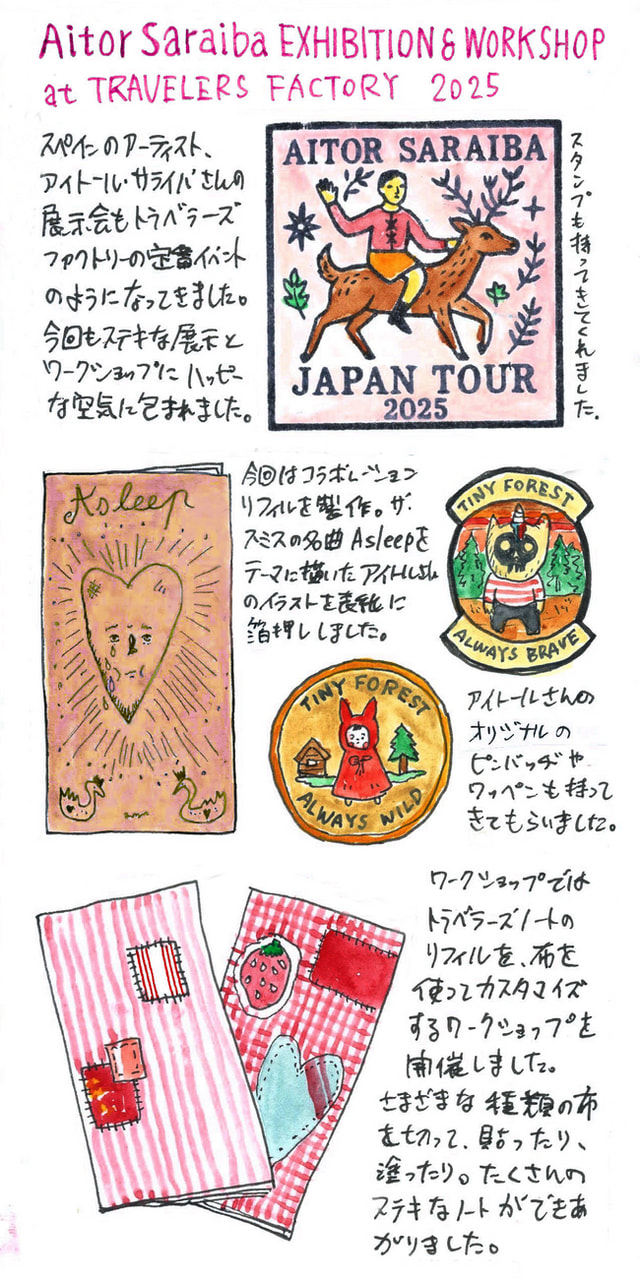 Aitor Saraiba EXHIBITION & WORKSHOP
at TRAVELERS FACTORY 2025
スペインのアーティスト、
アイトール・サライバさんの
展示会もトラベラーズ
ファクトリーの定番イベント
のようになってきました。
今回もステキな展示と
ワークショップにハッピー
な空気に包まれました。
AITOR SARAIBA
JAPAN TOUR
2025
スタンプも持ってきてくれました。
Asleep
今回はコラボレーション
リフィルを製作。ザ・
スミスの名曲Asleepを
テーマに描いたアイトールさん
のイラストを表紙に
箔押ししました。
TINY FOREST
ALWAYS BRAVE
TINY FOREST
ALWAYS WILD
アイトールさんの
オリジナルの
ピンバッヂや
ワッペンも持って
きてもらいました。
ワークショップでは
トラベラーズノートの
リフィルを、布を
使ってカスタマイズ
するワークショップを
開催しました。
さまざまな種類の布
を切って、貼ったり、
塗ったり。たくさんの
ステキなノートができあ
がりました。